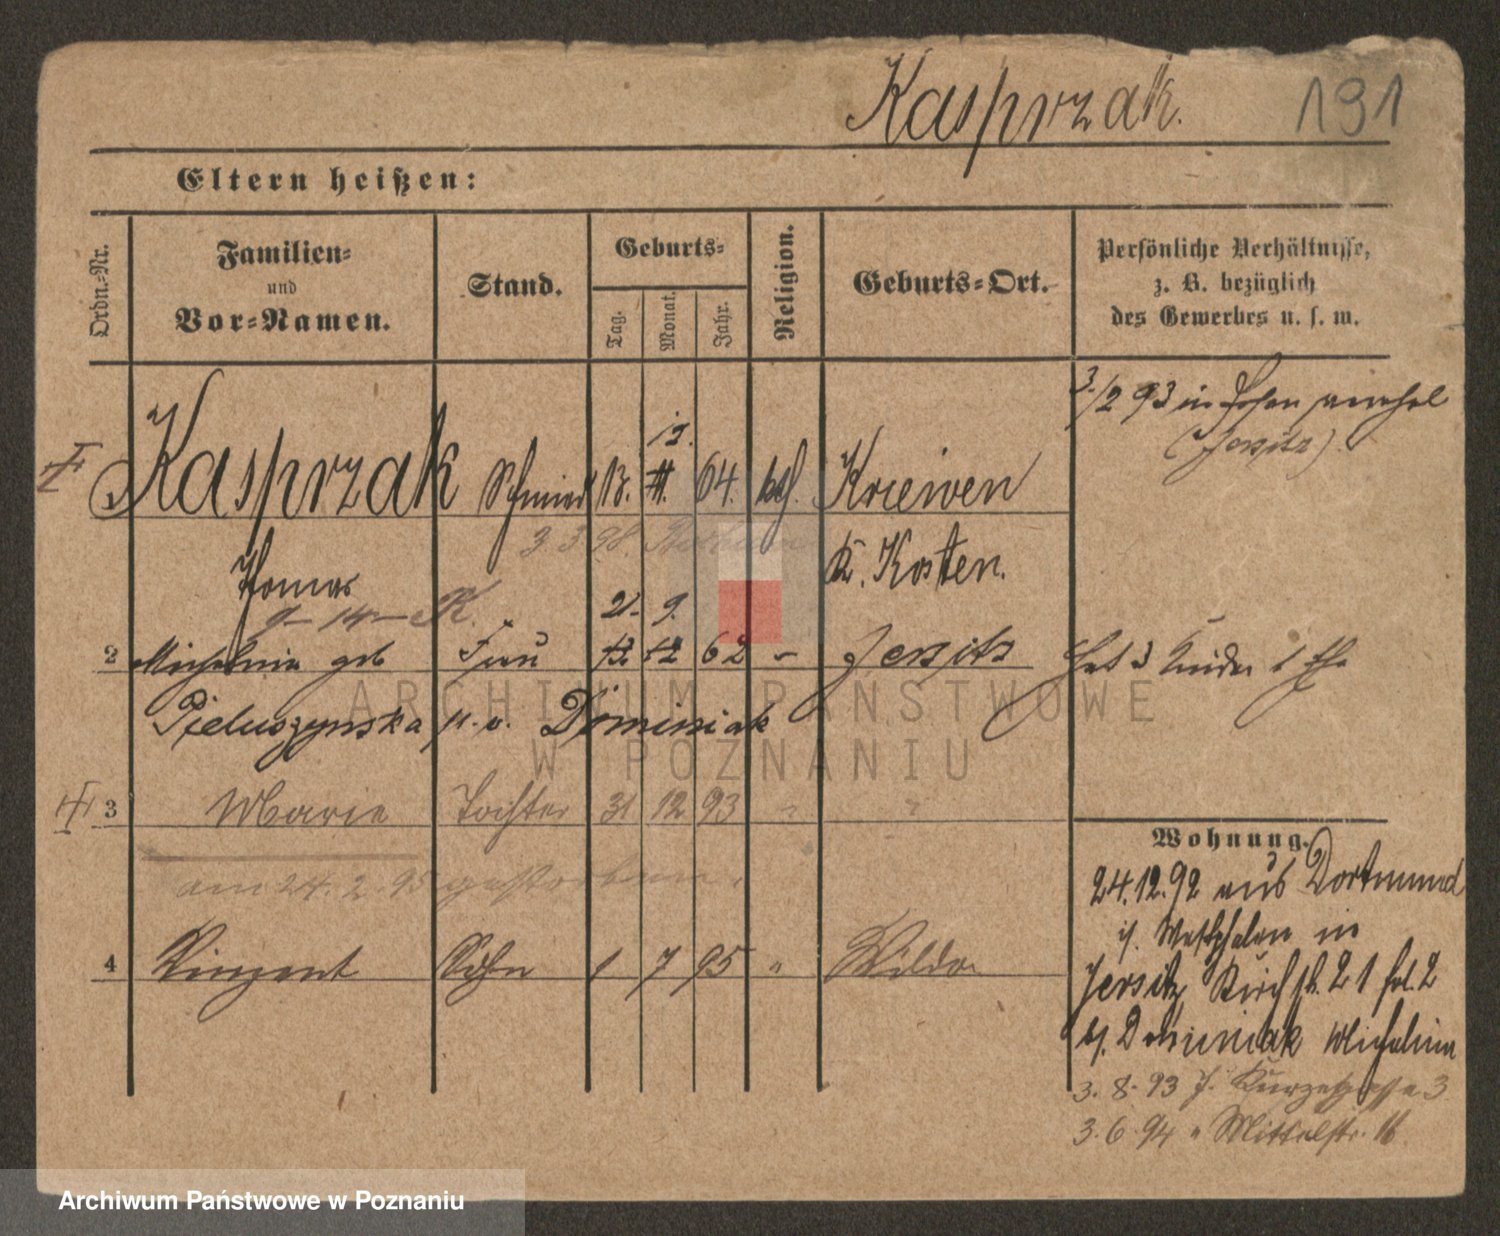 Kasprzak. 191
Eltern heißen:
Ordn.-Nr.
Familien-
und
Vor-Namen.
Stand.
Geburts-
Tag.
Monat.
Jahr.
Religion.
Geburts-Ort.
Persönliche Verhältnisse,
z. B. bezüglich
des Gewerbes u. s. w.
3/2 93 in Posen
(Jersitz).
12.
1 Kasprzak Schmied 13. 64. kth. Kriewen
3 3 98.
Thomas Kr. Kosten.
21. 9.
2 Michalina geb Frau 12 12 62 " Jersitz hat 3 Kinder 1 Ehe
Pieluszynska u. v. Dominiak
3 Marie Tochter 31 12 93 " "
am 24. 2. 95 gestorben.
4 Vinzent Sohn 1 7 95 " Wilda
Wohnung.
24.12.92 aus Dortmund
i/. Westphalen in
Jersitz Kirchstr. 21 Hol. 2
b/. Dominiak Michalina
3. 8. 93 J. Kurzestrasse 3
3. 6. 94 " Mittelstr. 16
ARCHIWUM PAŃSTWOWE
W POZNANIU
Archiwum Państwowe w Poznaniu